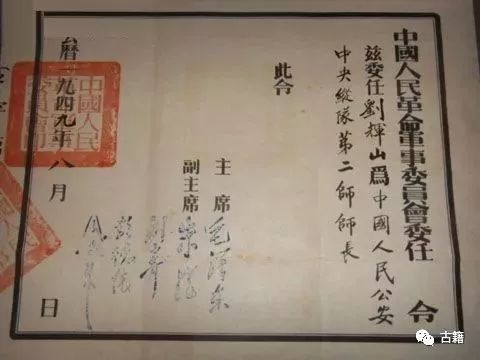 中國人民革命軍事委員會委任令
茲委任劉輝山爲中國人民公安
中央縱隊第二師師長
此令
主席 毛澤东
副主席 朱德
劉少奇
彭德懷
周恩來
曆一九四九年八月 日
中國人民
委員會印
古籍